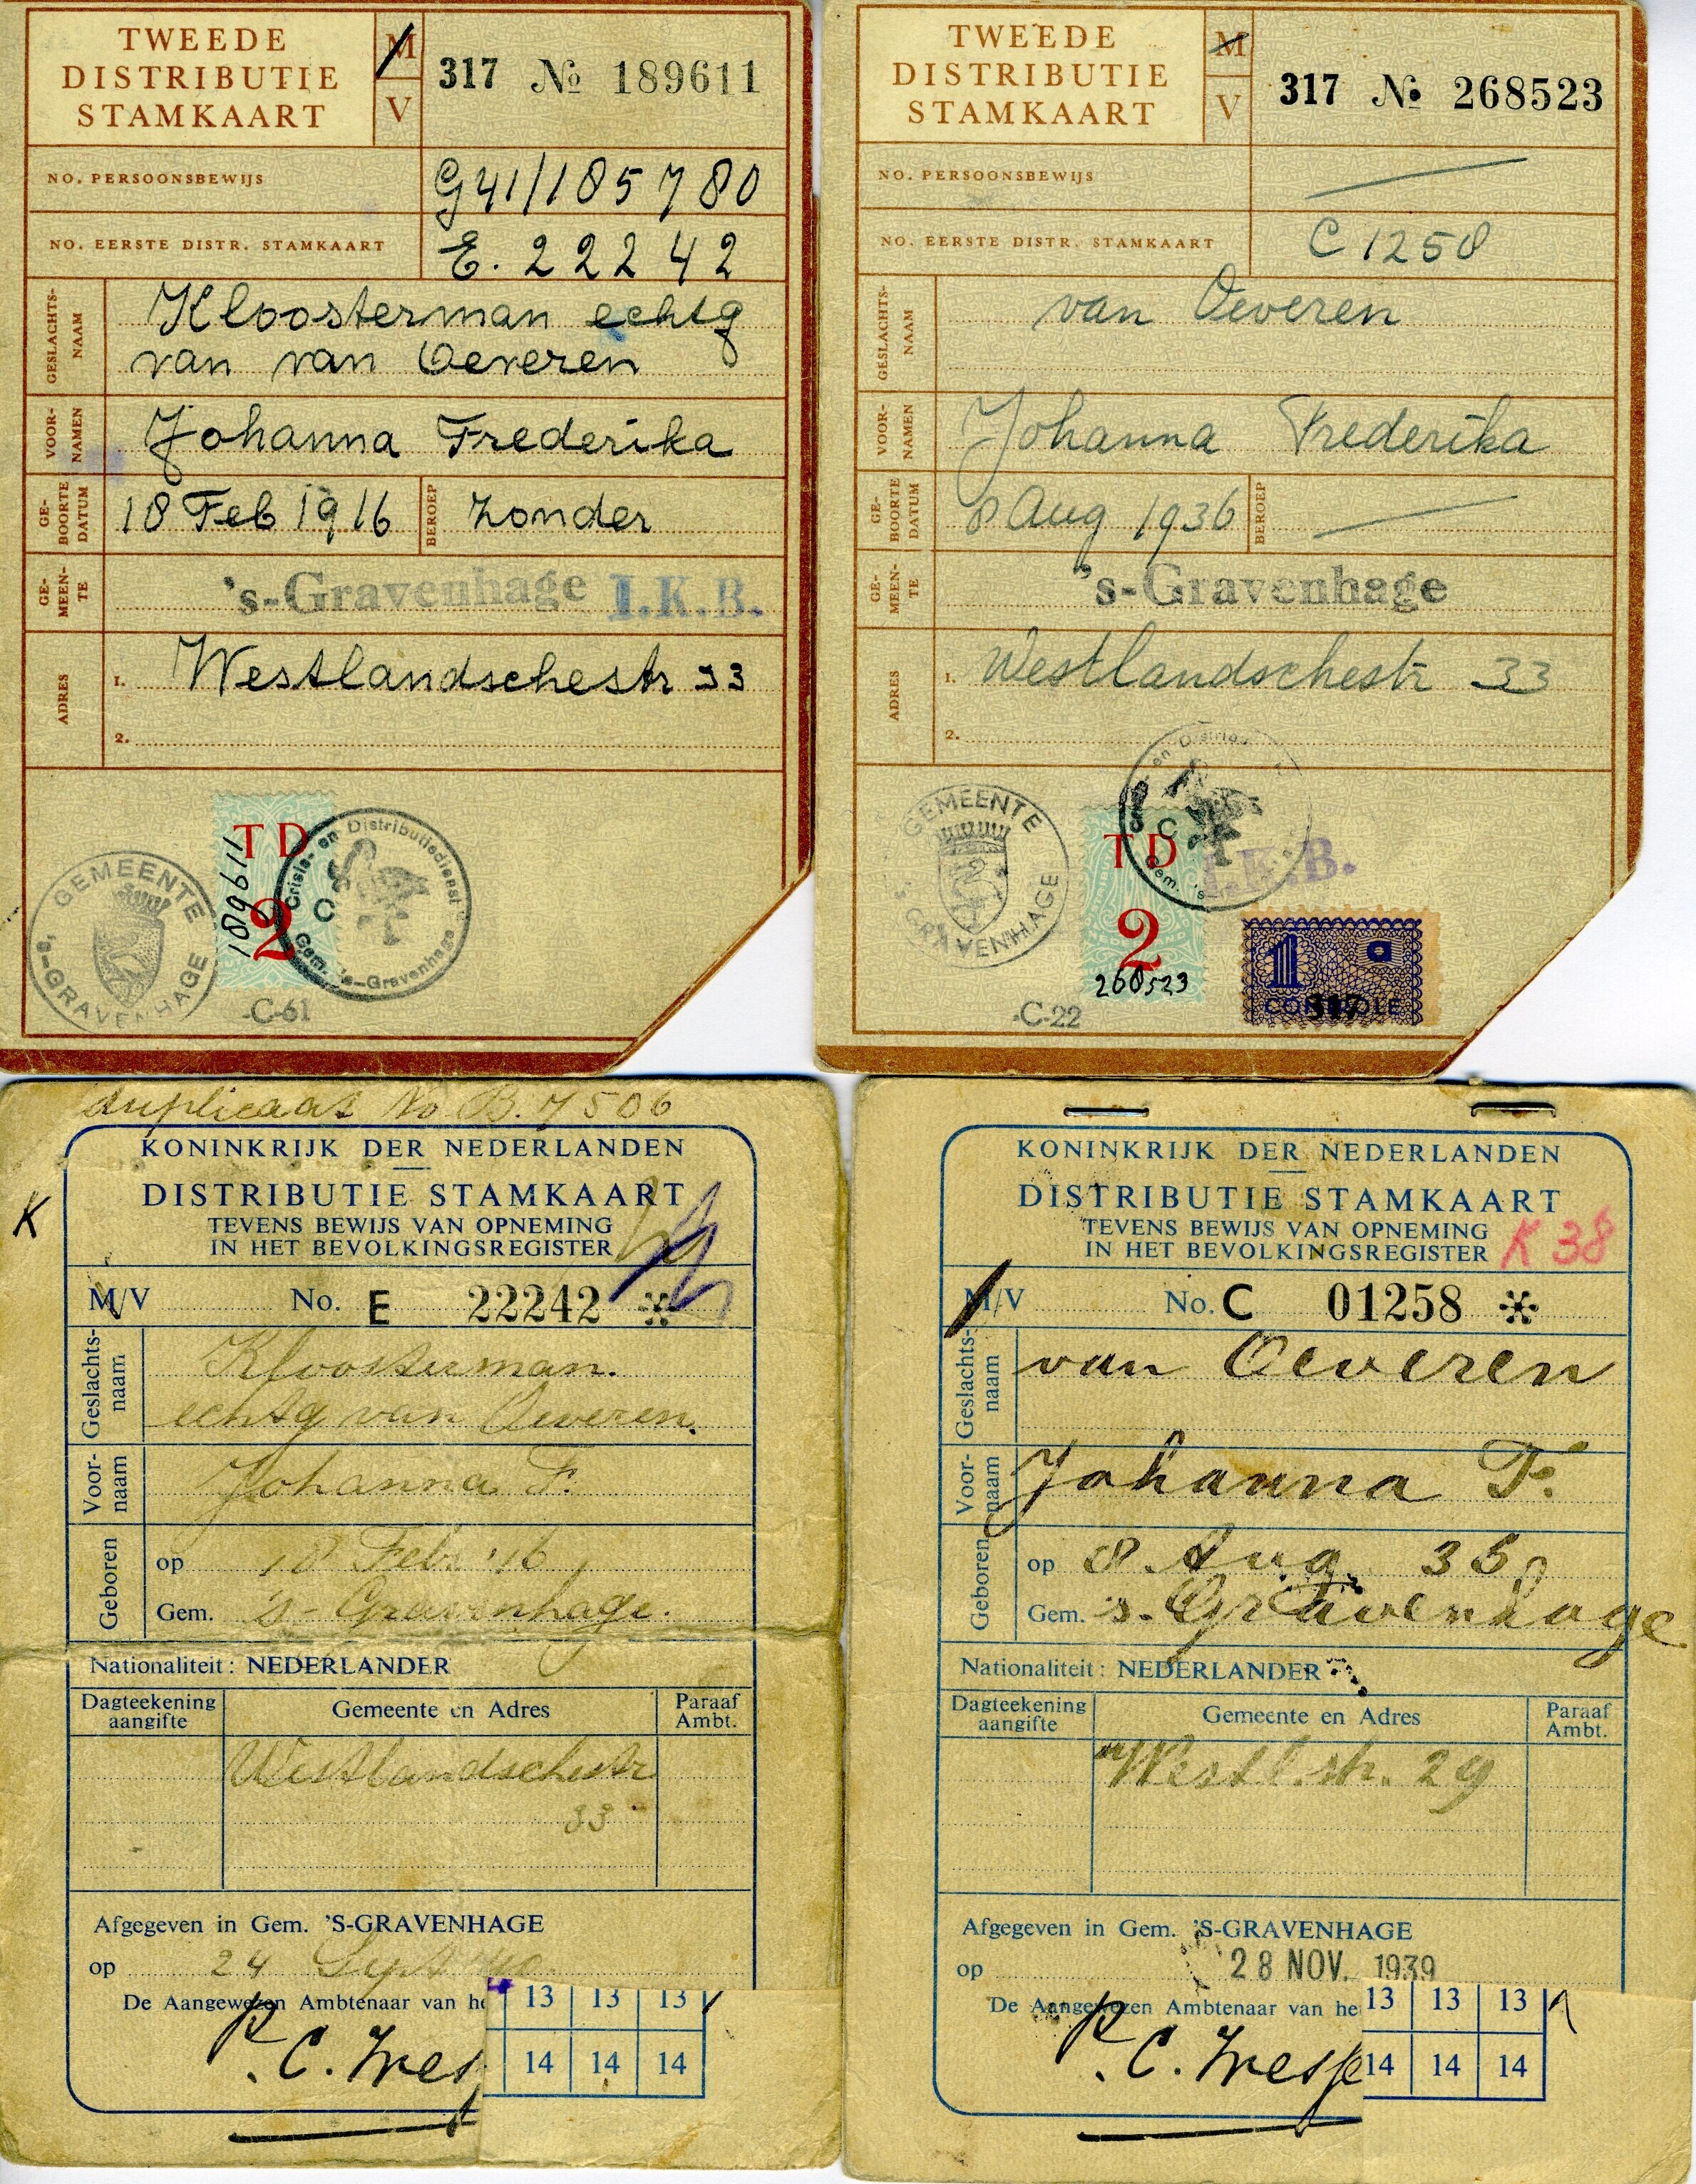 TWEEDE
DISTRIBUTIE
STAMKAART
M
V
317 № 189611
NO. PERSOONSBEWIJS
G41/185780
NO. EERSTE DISTR. STAMKAART
E. 22242
GESLACHTS-
NAAM
Kloosterman echtg
van van Oeveren
VOOR-
NAMEN
Johanna Frederika
GE-
BOORTE
DATUM
18 Feb 1916
BEROEP
zonder
GE-
MEEN-
TE
's-Gravenhage I.K.B.
ADRES
1. Westlandschestr 33
2.
GEMEENTE
's-GRAVENHAGE
TD
2
189611
Crisis- en Distributiedienst
C
Gem. 's-Gravenhage
-C-61
TWEEDE
DISTRIBUTIE
STAMKAART
M
V
317 № 268523
NO. PERSOONSBEWIJS
NO. EERSTE DISTR. STAMKAART
C 1258
GESLACHTS-
NAAM
van Oeveren
VOOR-
NAMEN
Johanna Frederika
GE-
BOORTE
DATUM
8 Aug 1936
BEROEP
GE-
MEEN-
TE
's-Gravenhage
ADRES
1. Westlandschestr 33
2.
GEMEENTE
's GRAVENHAGE
TD
2
268523
en Distribu
C
Gem. 's
I.K.B.
1 a
CONTROLE
317
-C-22
duplicaat No B. 7506
K
KONINKRIJK DER NEDERLANDEN
DISTRIBUTIE STAMKAART
TEVENS BEWIJS VAN OPNEMING
IN HET BEVOLKINGSREGISTER
M/V No. E 22242 *
Geslachts-
naam
Kloosterman.
echtg van Oeveren.
Voor-
naam
Johanna F.
Geboren
op 18 Feb. '16
Gem. 's-Gravenhage.
Nationaliteit: NEDERLANDER
Dagteekening
aangifte
Gemeente en Adres
Paraaf
Ambt.
Westlandschestr
33
Afgegeven in Gem. 'S-GRAVENHAGE
op 24 Sept
De Aangewezen Ambtenaar van he
13 13 13
14 14 14
KONINKRIJK DER NEDERLANDEN
DISTRIBUTIE STAMKAART
TEVENS BEWIJS VAN OPNEMING
IN HET BEVOLKINGSREGISTER
K 38
M/V No. C 01258 *
Geslachts-
naam
van Oeveren
Voor-
naam
Johanna F.
Geboren
op 8 Aug. 36
Gem. 's-Gravenhage
Nationaliteit: NEDERLANDER
Dagteekening
aangifte
Gemeente en Adres
Paraaf
Ambt.
Westl.str. 29
Afgegeven in Gem. 'S-GRAVENHAGE
op 28 NOV. 1939
De Aangewezen Ambtenaar van he
13 13 13
14 14 14